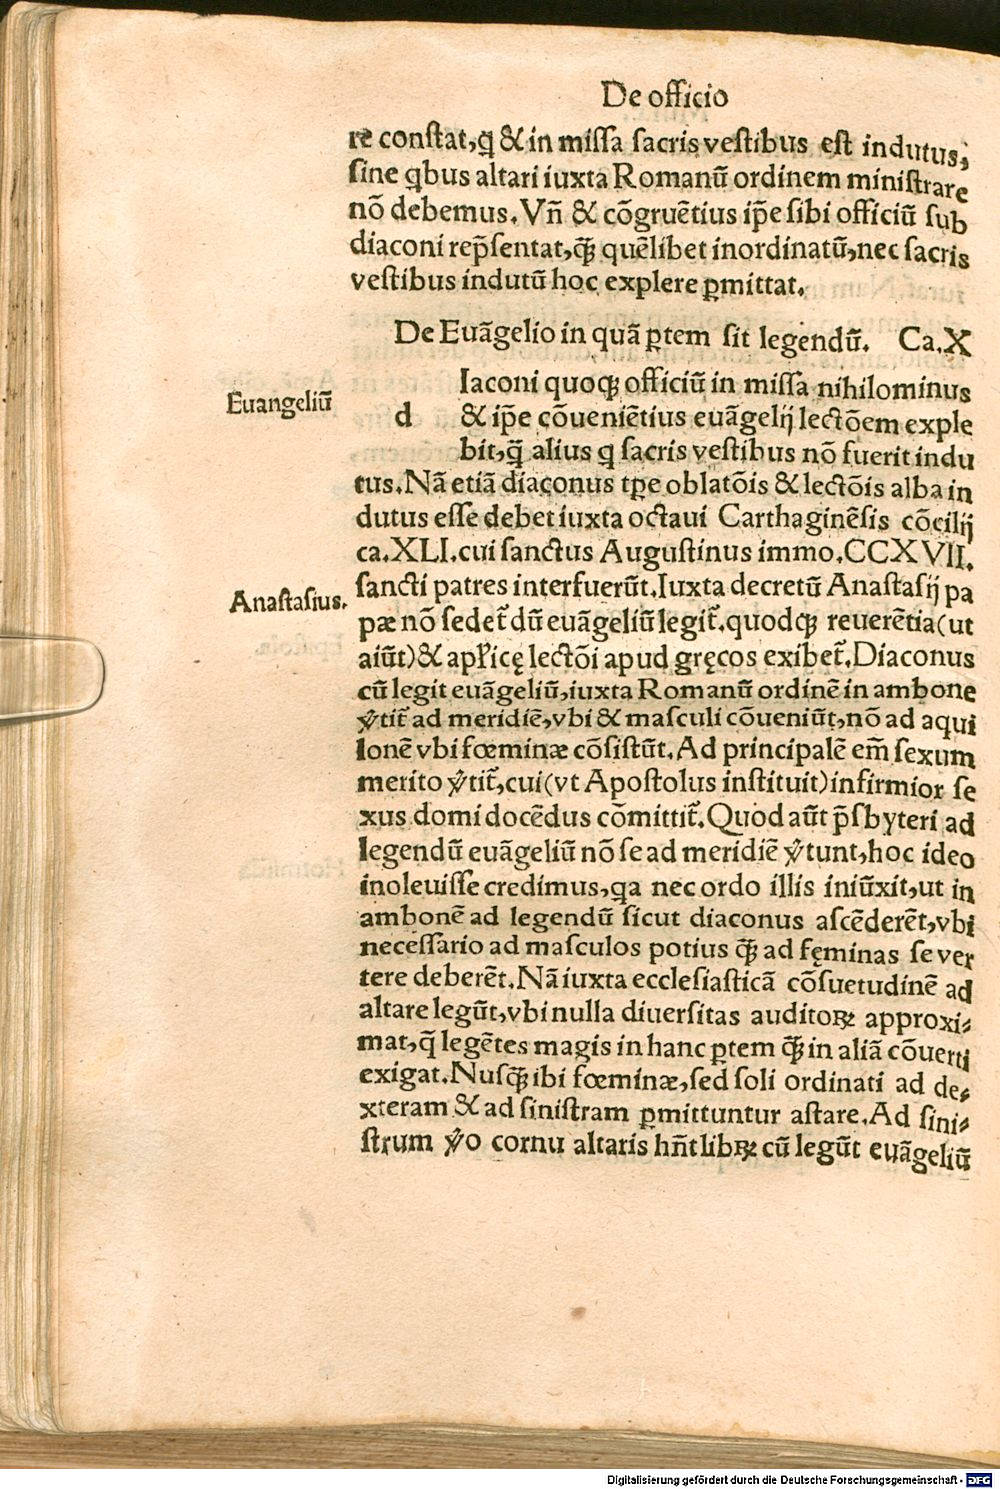 De officio
re constat, q̃ & in missa sacris vestibus est indutus,
sine qbus altari iuxta Romanũ ordinem ministrare
nõ debemus. Vñ & cõgruẽtius ip̃e sibi officiũ sub
diaconi rep̃sentat, q̃ʒ quẽlibet inordinatũ, nec sacris
vestibus indutũ hoc explere ꝑmittat.
De Euãgelio in quã ꝑtem sit legendũ. Ca. X
Euangeliũ
Iaconi quoqʒ officiũ in missa nihilominus
d & ip̃e cõueniẽtius euãgelij lectõem exple
bit, q̃ alius q sacris vestibus nõ fuerit indu
tus. Nã etiã diaconus tꝑe oblatõis & lectõis alba in
dutus esse debet iuxta octaui Carthaginẽsis cõcilij
ca. XLI. cui sanctus Augustinus immo. CCXVII.
sancti patres interfuerũt. Iuxta decretũ Anastasij pa
Anastasius.
pæ nõ sedet̃ dũ euãgeliũ legit̃. quodqʒ reuerẽtia (ut
aiũt) & apl̃icę lectõi apud gręcos exibet̃. Diaconus
cũ legit euãgeliũ, iuxta Romanũ ordinẽ in ambone
v̉tit̃ ad meridiẽ, vbi & masculi cõueniũt, nõ ad aqui
lonẽ vbi fœminæ cõsistũt. Ad principalẽ em̃ sexum
merito v̉tit̃, cui (vt Apostolus instituit) infirmior se
xus domi docẽdus cõmittit̃. Quod aũt p̃sbyteri ad
legendũ euãgeliũ nõ se ad meridiẽ v̉tunt, hoc ideo
inoleuisse credimus, qa nec ordo illis iniũxit, ut in
ambonẽ ad legendũ sicut diaconus ascẽderẽt, vbi
necessario ad masculos potius q̃ʒ ad fęminas se ver
tere deberẽt. Nã iuxta ecclesiasticã cõsuetudinẽ ad
altare legũt, vbi nulla diuersitas auditoꝝ approxi⸗
mat, q̃ legẽtes magis in hanc ꝑtem q̃ʒ in aliã cõuerti
exigat. Nusq̃ʒ ibi fœminæ, sed soli ordinati ad de⸗
xteram & ad sinistram ꝑmittuntur astare. Ad sini⸗
strum v̉o cornu altaris hñt libꝝ cũ legũt euãgeliũ
Digitalisierung gefördert durch die Deutsche Forschungsgemeinschaft - DFG